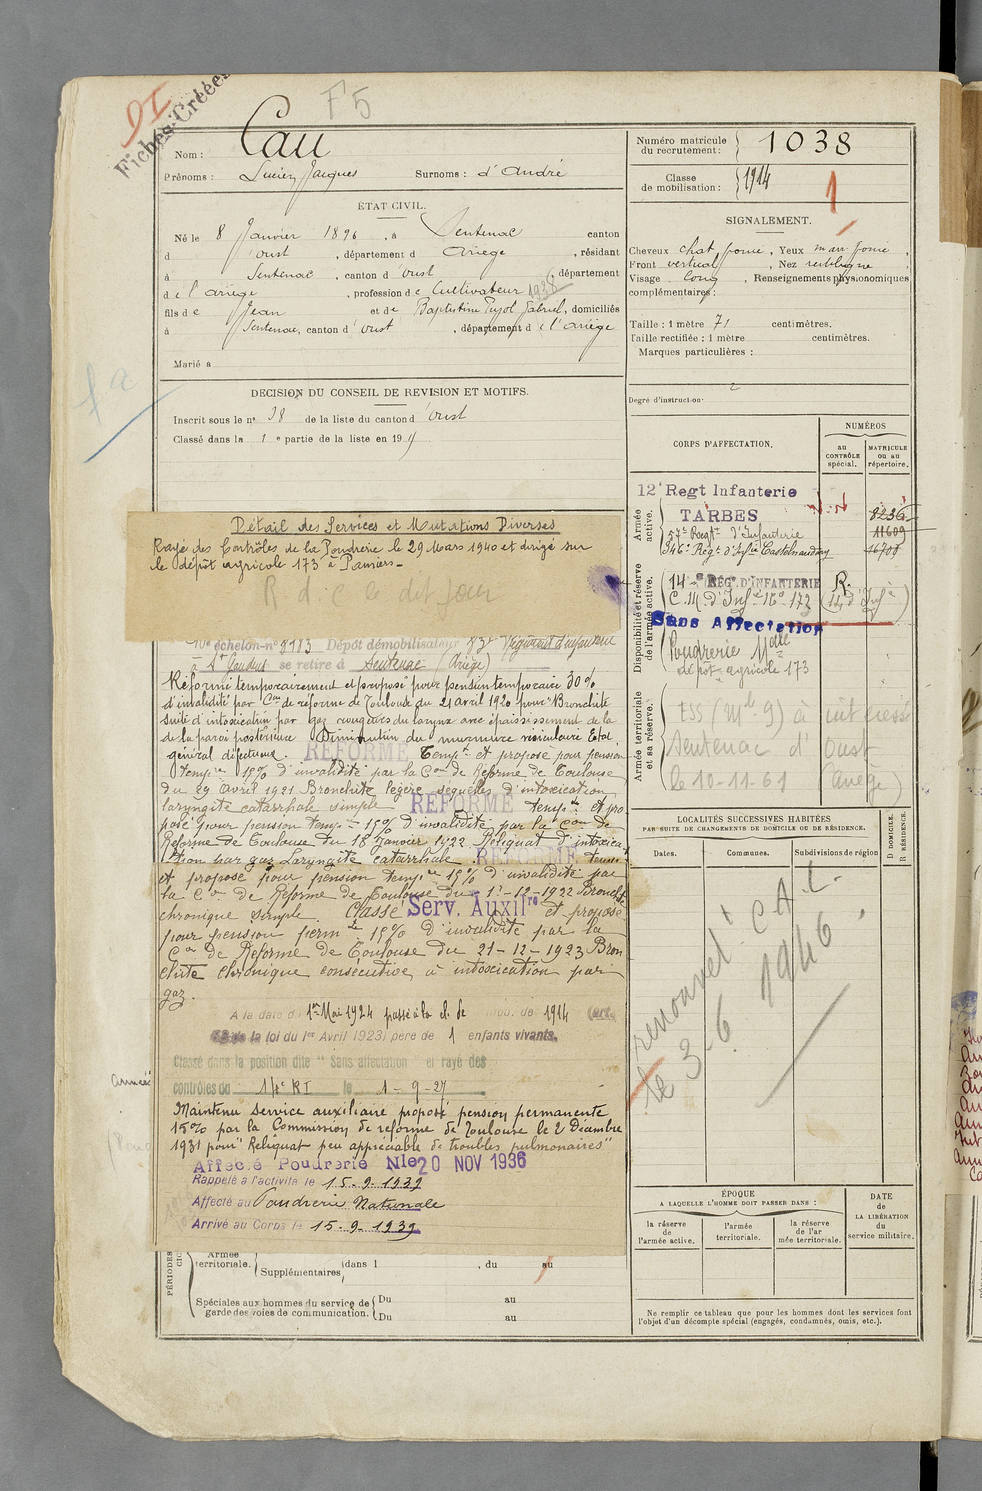 DI
Fiches Créées
F5
Nom : Cau
Prénoms : Lucien Jacques Surnoms : d'André
Numéro matricule du recrutement : 1038
Classe de mobilisation : 1914
1
ETAT CIVIL.
Né le 8 Janvier 1896, à Sentenac canton
d'Oust, département d Ariège, résidant
à Sentenac, canton d'Oust, département
de l'Ariège, profession de Cultivateur 1938
fils de Jean et de Baptistine Pujol Gabriel, domiciliés
à Sentenac, canton d'Oust, département de l'Ariège
Marié à
SIGNALEMENT.
Cheveux chat. foncé, Yeux marr. foncé,
Front vertical, Nez rectiligne,
Visage long, Renseignements physionomiques
complémentaires :
Taille : 1 mètre 71 centimètres.
Taille rectifiée : 1 mètre centimètres.
Marques particulières :
Degré d'instruction 2
fa
DECISION DU CONSEIL DE REVISION ET MOTIFS.
Inscrit sous le n° 38 de la liste du canton d'Oust
Classé dans la 1e partie de la liste en 191
CORPS D'AFFECTATION.
NUMÉROS
au CONTRÔLE spécial.
MATRICULE ou au répertoire.
Armée active.
12e Regt Infanterie
TARBES
8236
57e Regt d'Infanterie 11609
346e Régt d'Infie Castelnaudary 16701
Disponibilité et réserve de l'armée active.
14e REGt D'INFANTERIE R.
C. M. d'Inf. 16° 173 (14 d'Infie)
Sans Affectation
Poudrerie Nlle
dépôt agricole 173
Armée territoriale et sa réserve.
ESS (Mle 9) à intéressé
Sentenac d'Oust
le 10-11-61 (Ariège)
Détail des Services et Mutations Diverses
Rayé des Contrôles de la Poudrerie le 29 Mars 1940 et dirigé sur
le dépôt agricole 173 à Pamiers.
R d c le dit jour
échelon-n° 8183 Dépôt démobilisateur 83e Régiment d'infanterie
à St Gaudens se retire à Sentenac (Ariège)
Réformé temporairement et proposé pour pension temporaire 30%
d'invalidité par Con de réforme de Toulouse du 21 avril 1920 pour "Bronchite
suite d'intoxication par gaz rougeurs du larynx avec épaississement de la
de la paroi postérieure Diminution du murmure vésiculaire Etat
général défectueux. REFORMÉ Tempt et proposé pour pension
tempre 15% d'invalidité par la Con de Réforme de Toulouse
du 29 Avril 1921 Bronchite légère séquelles d'intoxication
laryngite catarrhale simple REFORME tempt et pro
posé pour pension tempre 15% d'invalidité par la Con de
Réforme de Toulouse du 18 Janvier 1922 Reliquat d'intoxica
tion par gaz Laryngite catarrhale. REFORMÉ temp
et proposé pour pension tempre 15% d'invalidité par
la Con de Réforme de Toulouse du 1-12-1922 Bronchite
chronique simple. Classé Serv. Auxilre et proposé
pour pension permte 15% d'invalidité par la
Con de Réforme de Toulouse du 21-12-1923 Bron
chite chronique consécutive à intoxication par
gaz.
A la date du 1er Mai 1924 passé à la cl. de mob. de 1914 (art.
de la loi du 1er Avril 1923) père de 1 enfants vivants.
Classé dans la position dite "Sans affectation et rayé des
contrôles du 14e RI le 1-9-27
Maintenu service auxiliaire proposé pension permanente
15% par la Commission de réforme de Toulouse le 2 Décembre
1931 pour "Reliquat peu appréciable de troubles pulmonaires"
Affecté Poudrerie Nle 20 NOV 1936
Rappelé à l'activité le 15-9-1939
Affecté au Poudrerie Nationale
Arrivé au Corps le 15-9-1939
LOCALITÉS SUCCESSIVES HABITÉES
PAR SUITE DE CHANGEMENTS DE DOMICILE OU DE RÉSIDENCE.
Dates. Communes. Subdivisions de région
D DOMICILE.
R RÉSIDENCE.
renouvelt C A C.
le 3-6. 1946
ÉPOQUE
A LAQUELLE L'HOMME DOIT PASSER DANS :
la réserve de l'armée active.
l'armée territoriale.
la réserve de l'armée territoriale.
DATE de LA LIBÉRATION du service militaire.
PÉRIODES
Armée territoriale.
Supplémentaires (dans l , du au
Spéciales aux hommes du service de garde des voies de communication.
Du au
Du au
Ne remplir ce tableau que pour les hommes dont les services font
l'objet d'un décompte spécial (engagés, condamnés, omis, etc.).